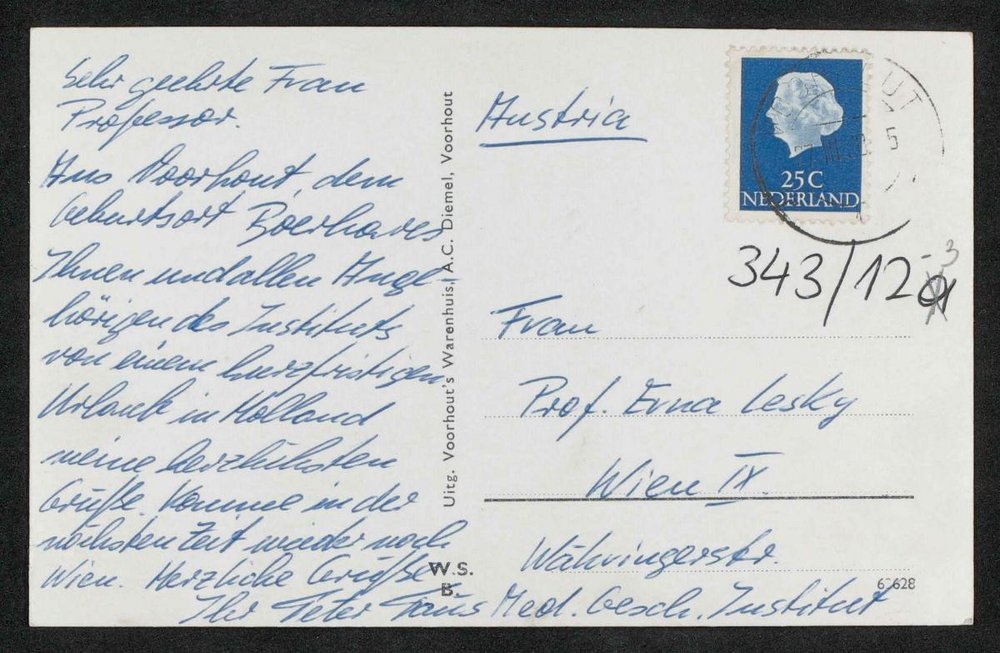 Sehr geehrte Frau
Professor.
Aus Voorhout, dem
Geburtsort Boerhaves
Ihnen und allen Ange-
hörigen des Instituts
von einem kurzfristigen
Urlaub in Holland
meine herzlichsten
Grüße. Komme in der
nächsten Zeit wieder nach
Wien. Herzliche Grüße
Ihr Peter
Uitg. Voorhout's Warenhuis, A.C. Diemel, Voorhout
W.S.
B.
Austria
25C
NEDERLAND
343/12
-3
Frau
Prof. Erna Lesky
Wien IX.
Währingerstr.
Med. Gesch. Institut